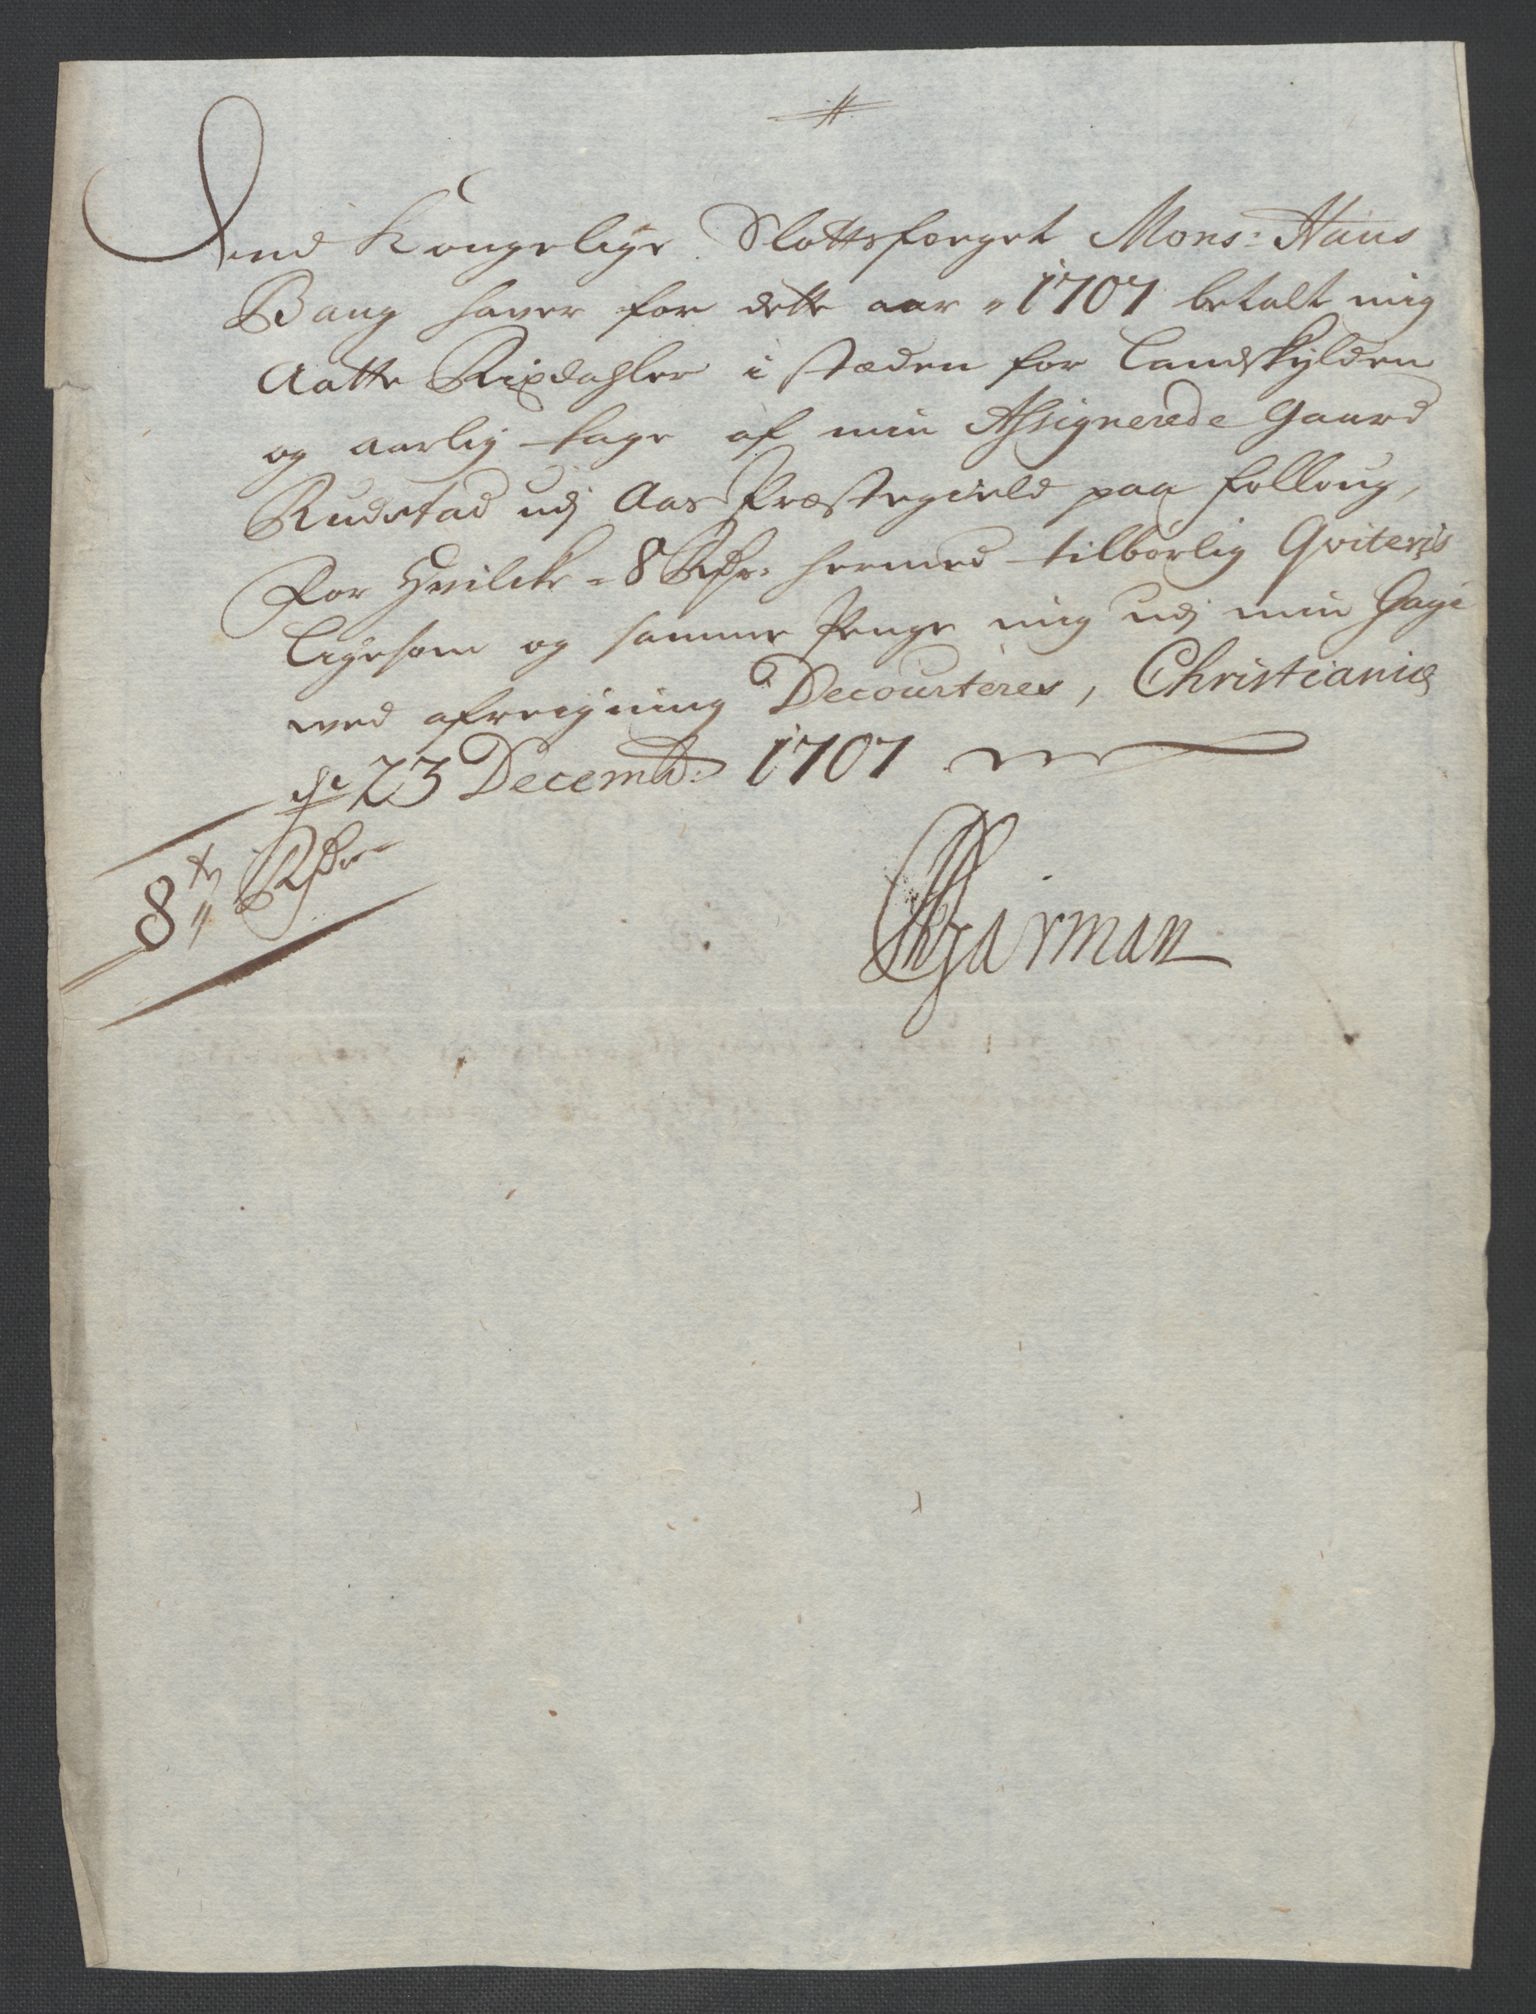 Dend Kongelige Slottsfoeget Mons: Hans
Bang haver for dette aar 1707 betalt mig
Aatte Rixdahler i stæden for Landskylden
og aarlig tage af min Assignerede Gaard
Rudstad udj Aas Præstegield paa Folloug,
For Hvilcke 8 Rdr. hermed tilbørlig Qviteris
Ligesom og samme Penge mig udj min Gage
ved afreigning Decourteres, Christiania
de 23 Decemb: 1707
8 Rdr
Garman